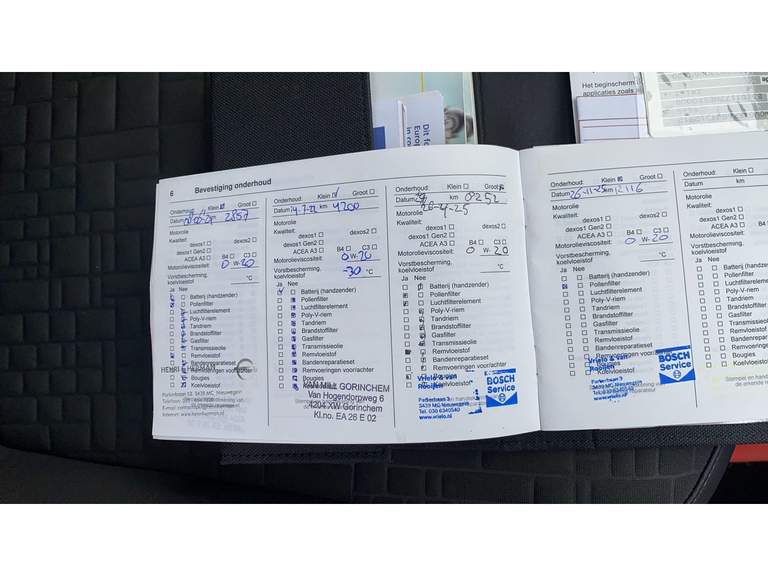 Dit fo
Europ
in co
Het beginscherm
applicaties zoals
6 Bevestiging onderhoud
Onderhoud: Klein Groot
Datum km 2857
Motorolie
Kwaliteit:
dexos1 dexos2
dexos1 Gen2
ACEA A3 B4 C3
Motorolieviscositeit: 0 W- 20
Vorstbescherming, koelvloeistof °C
Ja Nee
Batterij (handzender)
Pollenfilter
Luchtfilterelement
Poly-V-riem
Tandriem
Brandstoffilter
Gasfilter
Transmissieolie
Remvloeistof
Bandenreparatieset
Remvoeringen voor/achter
Bougies
Koelvloeistof
Parkerlaan 3439 MC Nieuwegein
Onderhoud: Klein Groot
Datum 14-7-22 km 4700
Motorolie
Kwaliteit:
dexos1 dexos2
dexos1 Gen2
ACEA A3 B4 C3
Motorolieviscositeit: 0 W- 20
Vorstbescherming, koelvloeistof -30 °C
Ja Nee
Batterij (handzender)
Pollenfilter
Luchtfilterelement
Poly-V-riem
Tandriem
Brandstoffilter
Gasfilter
Transmissieolie
Remvloeistof
Bandenreparatieset
Remvoeringen voor/achter
Bougies
Koelvloeistof
VAN MILL GORINCHEM
Van Hogendorpweg 6
4204 XW Gorinchem
Kl.no. EA 26 E 02
Onderhoud: Klein Groot
Datum km
28-4-25
Motorolie
Kwaliteit:
dexos1 dexos2
dexos1 Gen2
ACEA A3 B4 C3
Motorolieviscositeit: 0 W- 20
Vorstbescherming, koelvloeistof °C
Ja Nee
Batterij (handzender)
Pollenfilter
Luchtfilterelement
Poly-V-riem
Tandriem
Brandstoffilter
Gasfilter
Transmissieolie
Remvloeistof
Bandenreparatieset
Remvoeringen voor/achter
Bougies
Koelvloeistof
Vrielo & van
Rooijen
Parkerlaan 3
3439 MC Nieuwegein
Tel. 030 6340540
www.vrielo.nl
BOSCH
Service
Onderhoud: Klein Groot
Datum 26-11-25 km 12116
Motorolie
Kwaliteit:
dexos1 dexos2
dexos1 Gen2
ACEA A3 B4 C3
Motorolieviscositeit: 0 W- 20
Vorstbescherming, koelvloeistof °C
Ja Nee
Batterij (handzender)
Pollenfilter
Luchtfilterelement
Poly-V-riem
Tandriem
Brandstoffilter
Gasfilter
Transmissieolie
Remvloeistof
Bandenreparatieset
Remvoeringen voor/achter
Bougies
Koelvloeistof
Vrielo & van
Rooijen
Parkerlaan 3
3439 MC Nieuwegein
Tel. 030 6340540
www.vrielo.nl
BOSCH
Service
Onderhoud:
Datum km
Motorolie
Kwaliteit:
dexos1
dexos1 Gen2
ACEA A3
Motorolieviscositeit:
Vorstbescherming,
koelvloeistof
Ja Nee
Batterij (h
Pollenfilter
Luchtfilter
Poly-V-rie
Tandriem
Brandstof
Gasfilter
Transmiss
Remvloei
Bandenre
Remvoeri
Bougies
Koelvloei
Stempel en handt
de erkende r